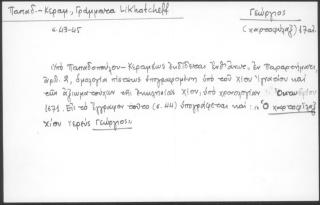 Παπαδ.-Κεραμ., Γράμματα Likhatcheff
Γεώργιος
(χαρτοφύλαξ) 17 αἰ.
σ. 43-45
Ὑπό Παπαδοπούλου-Κεραμέως ἐκδίδεται ἐνθάδε, ἐν Παραρτήματι,
ἀριθ. 2, ὁμολογία πίστεως ὑπογραφομένη ὑπό τοῦ Χίου Ἰγνατίου καί
τῶν ἀξιωματούχων τῆς ἐκκλησίας Χίου, ὑπό χρονολογίαν :
1671. Εἰς τό ἔγγραφον τοῦτο (σ. 44) ὑπογράφεται καί : «Ὁ χαρτοφύλαξ
Χίου ἱερεύς Γεώργιος».